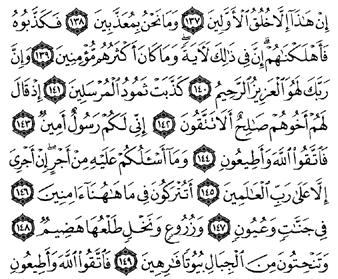 إِنْ هَٰذَآ إِلَّا خُلُقُ ٱلْأَوَّلِينَ ١٣٧ وَمَا نَحْنُ بِمُعَذَّبِينَ ١٣٨ فَكَذَّبُوهُ
فَأَهْلَكْنَٰهُمْ إِنَّ فِى ذَٰلِكَ لَءَايَةً وَمَا كَانَ أَكْثَرُهُم مُّؤْمِنِينَ ١٣٩ وَإِنَّ
رَبَّكَ لَهُوَ ٱلْعَزِيزُ ٱلرَّحِيمُ ١٤٠ كَذَّبَتْ ثَمُودُ ٱلْمُرْسَلِينَ ١٤١ إِذْ قَالَ
لَهُمْ أَخُوهُمْ صَٰلِحٌ أَلَا تَتَّقُونَ ١٤٢ إِنِّى لَكُمْ رَسُولٌ أَمِينٌ ١٤٣
فَٱتَّقُوا۟ ٱللَّهَ وَأَطِيعُونِ ١٤٤ وَمَآ أَسْـَٔلُكُمْ عَلَيْهِ مِنْ أَجْرٍ إِنْ أَجْرِىَ
إِلَّا عَلَىٰ رَبِّ ٱلْعَٰلَمِينَ ١٤٥ أَتُتْرَكُونَ فِى مَا هَٰهُنَآ ءَامِنِينَ ١٤٦
فِى جَنَّٰتٍ وَعُيُونٍ ١٤٧ وَزُرُوعٍ وَنَخْلٍ طَلْعُهَا هَضِيمٌ ١٤٨
وَتَنْحِتُونَ مِنَ ٱلْجِبَالِ بُيُوتًا فَٰرِهِينَ ١٤٩ فَٱتَّقُوا۟ ٱللَّهَ وَأَطِيعُونِ